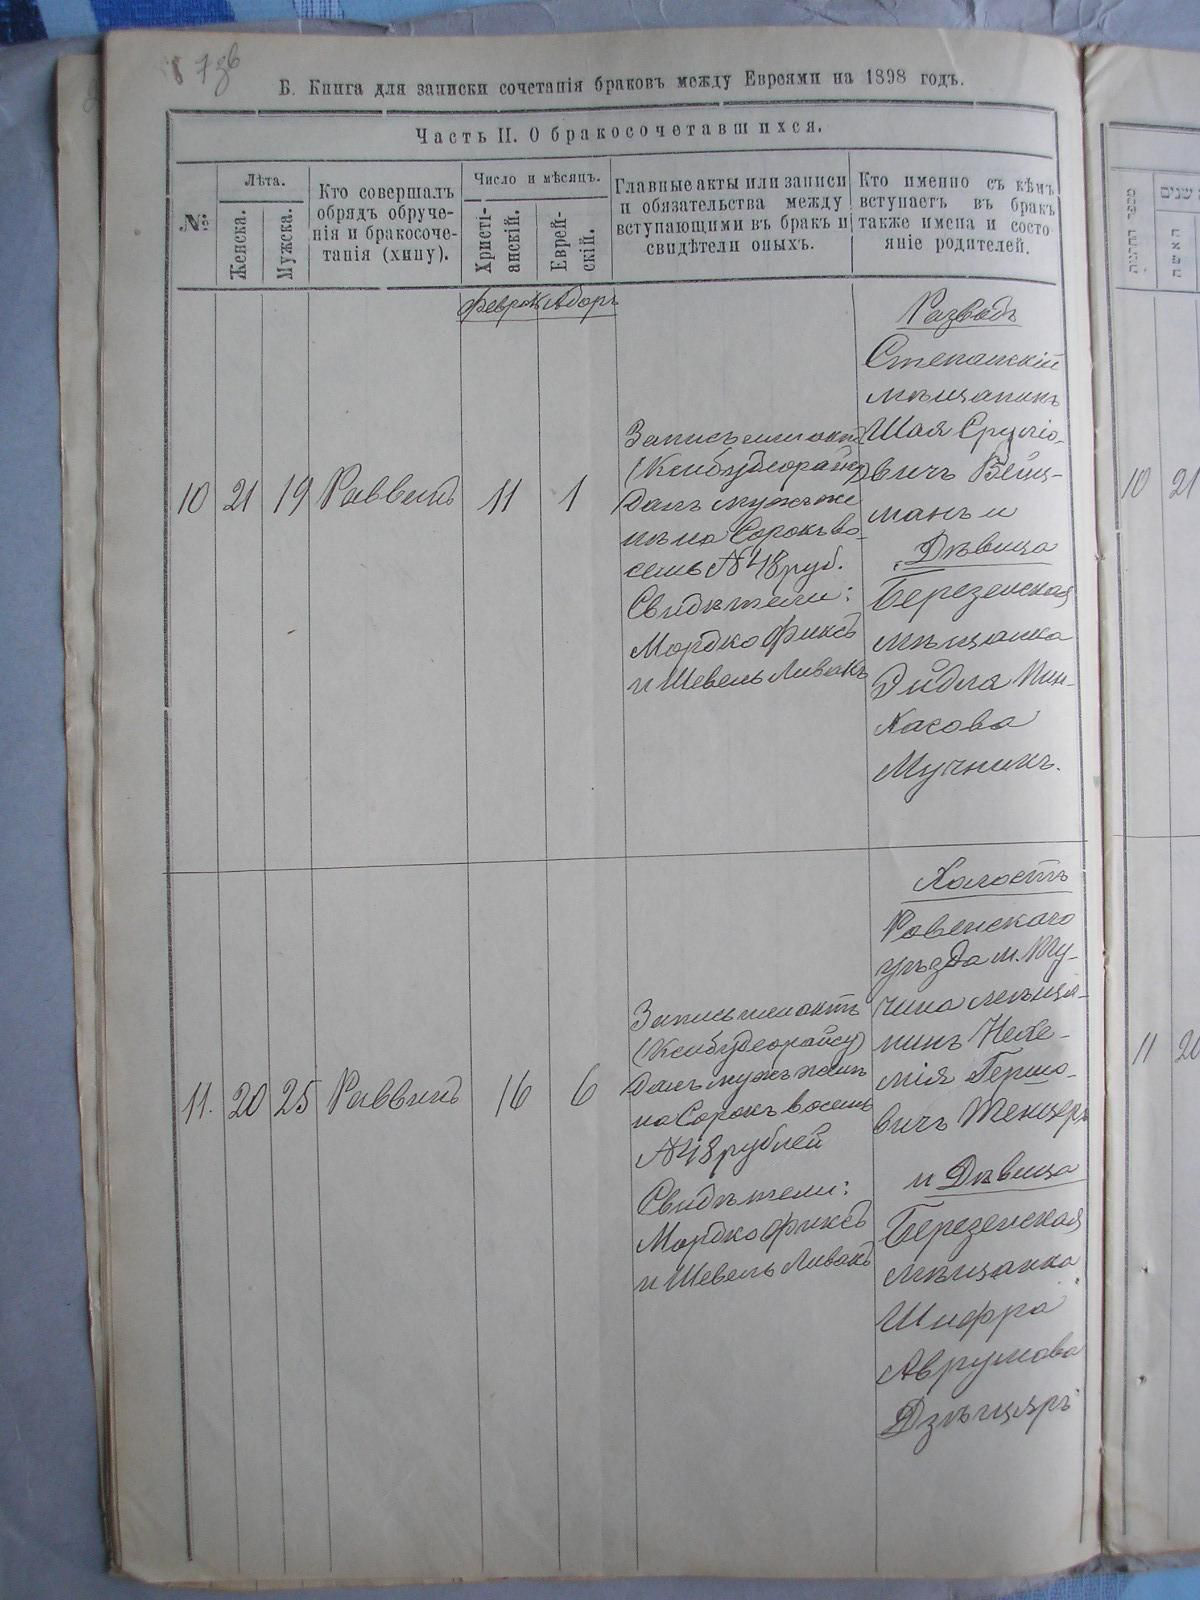 Б. Книга для записки сочетанія браковъ между Евреями на 1898 годъ.
Часть II. О бракосочетавшихся.
№
Лѣта.
Женска.
Мужска.
Кто совершалъ
обрядъ обруче-
нія и бракосоче-
танія (хипу).
Число и мѣсяцъ.
Христі-
анскій.
Еврей-
скій.
Главные акты или записи
и обязательства между
вступающими въ бракъ и
свидѣтели оныхъ.
Кто именно съ кѣмъ
вступаетъ въ бракъ
также имена и состо-
яніе родителей.
Адоръ
10
21
19
Раввинъ
11
1
Запись или актъ
далъ мужъ же
нѣ на Сорокъ во-
семь № 48 руб.
Свидѣтели:
Мордко Фиксъ
и Шевель Ливакъ
Разводъ
Степанскій
мѣщанинъ
Шая Сруліо-
вичъ Вейц-
манъ и
Дѣвица
Березенская
мѣщанка
Эйдля Пин-
хасова
Мучникъ.
11.
20
25
Раввинъ
16
6
Запись или актъ
далъ мужъ женѣ
на Сорокъ восемь
№ 48 рублей
Свидѣтели:
Мордко Фиксъ
и Шевель Ливакъ
Холостъ
Ровенскаго
уѣзда м. Ту-
чина мѣща-
нинъ Нехе-
мія Гершо-
вичъ Тенцеръ
и Дѣвица
Березенская
мѣщанка
Шифра
Аврумова
10
21
11
20